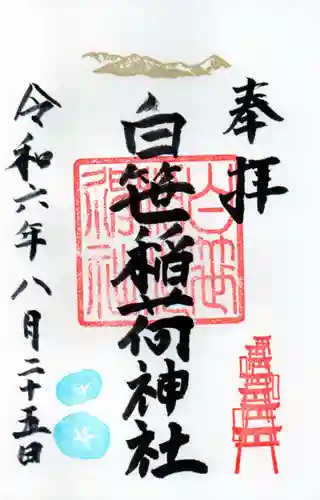 奉拝
白笹稲荷神社
令和六年八月二十五日
白笹
稲荷
神社